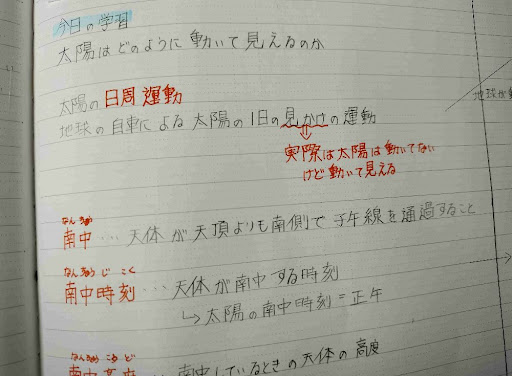 今日の学習
太陽はどのように動いて見えるのか
太陽の日周運動
地球の自転による太陽の1日の見かけの運動
実際は太陽は動いてない
けど動いて見える
なんちゅう
南中…天体が天頂よりも南側で子午線を通過すること
なんちゅうじこく
南中時刻…天体が南中する時刻
↳太陽の南中時刻=正午
なんちゅうこうど
南中高度…南中しているときの天体の高度
地球が